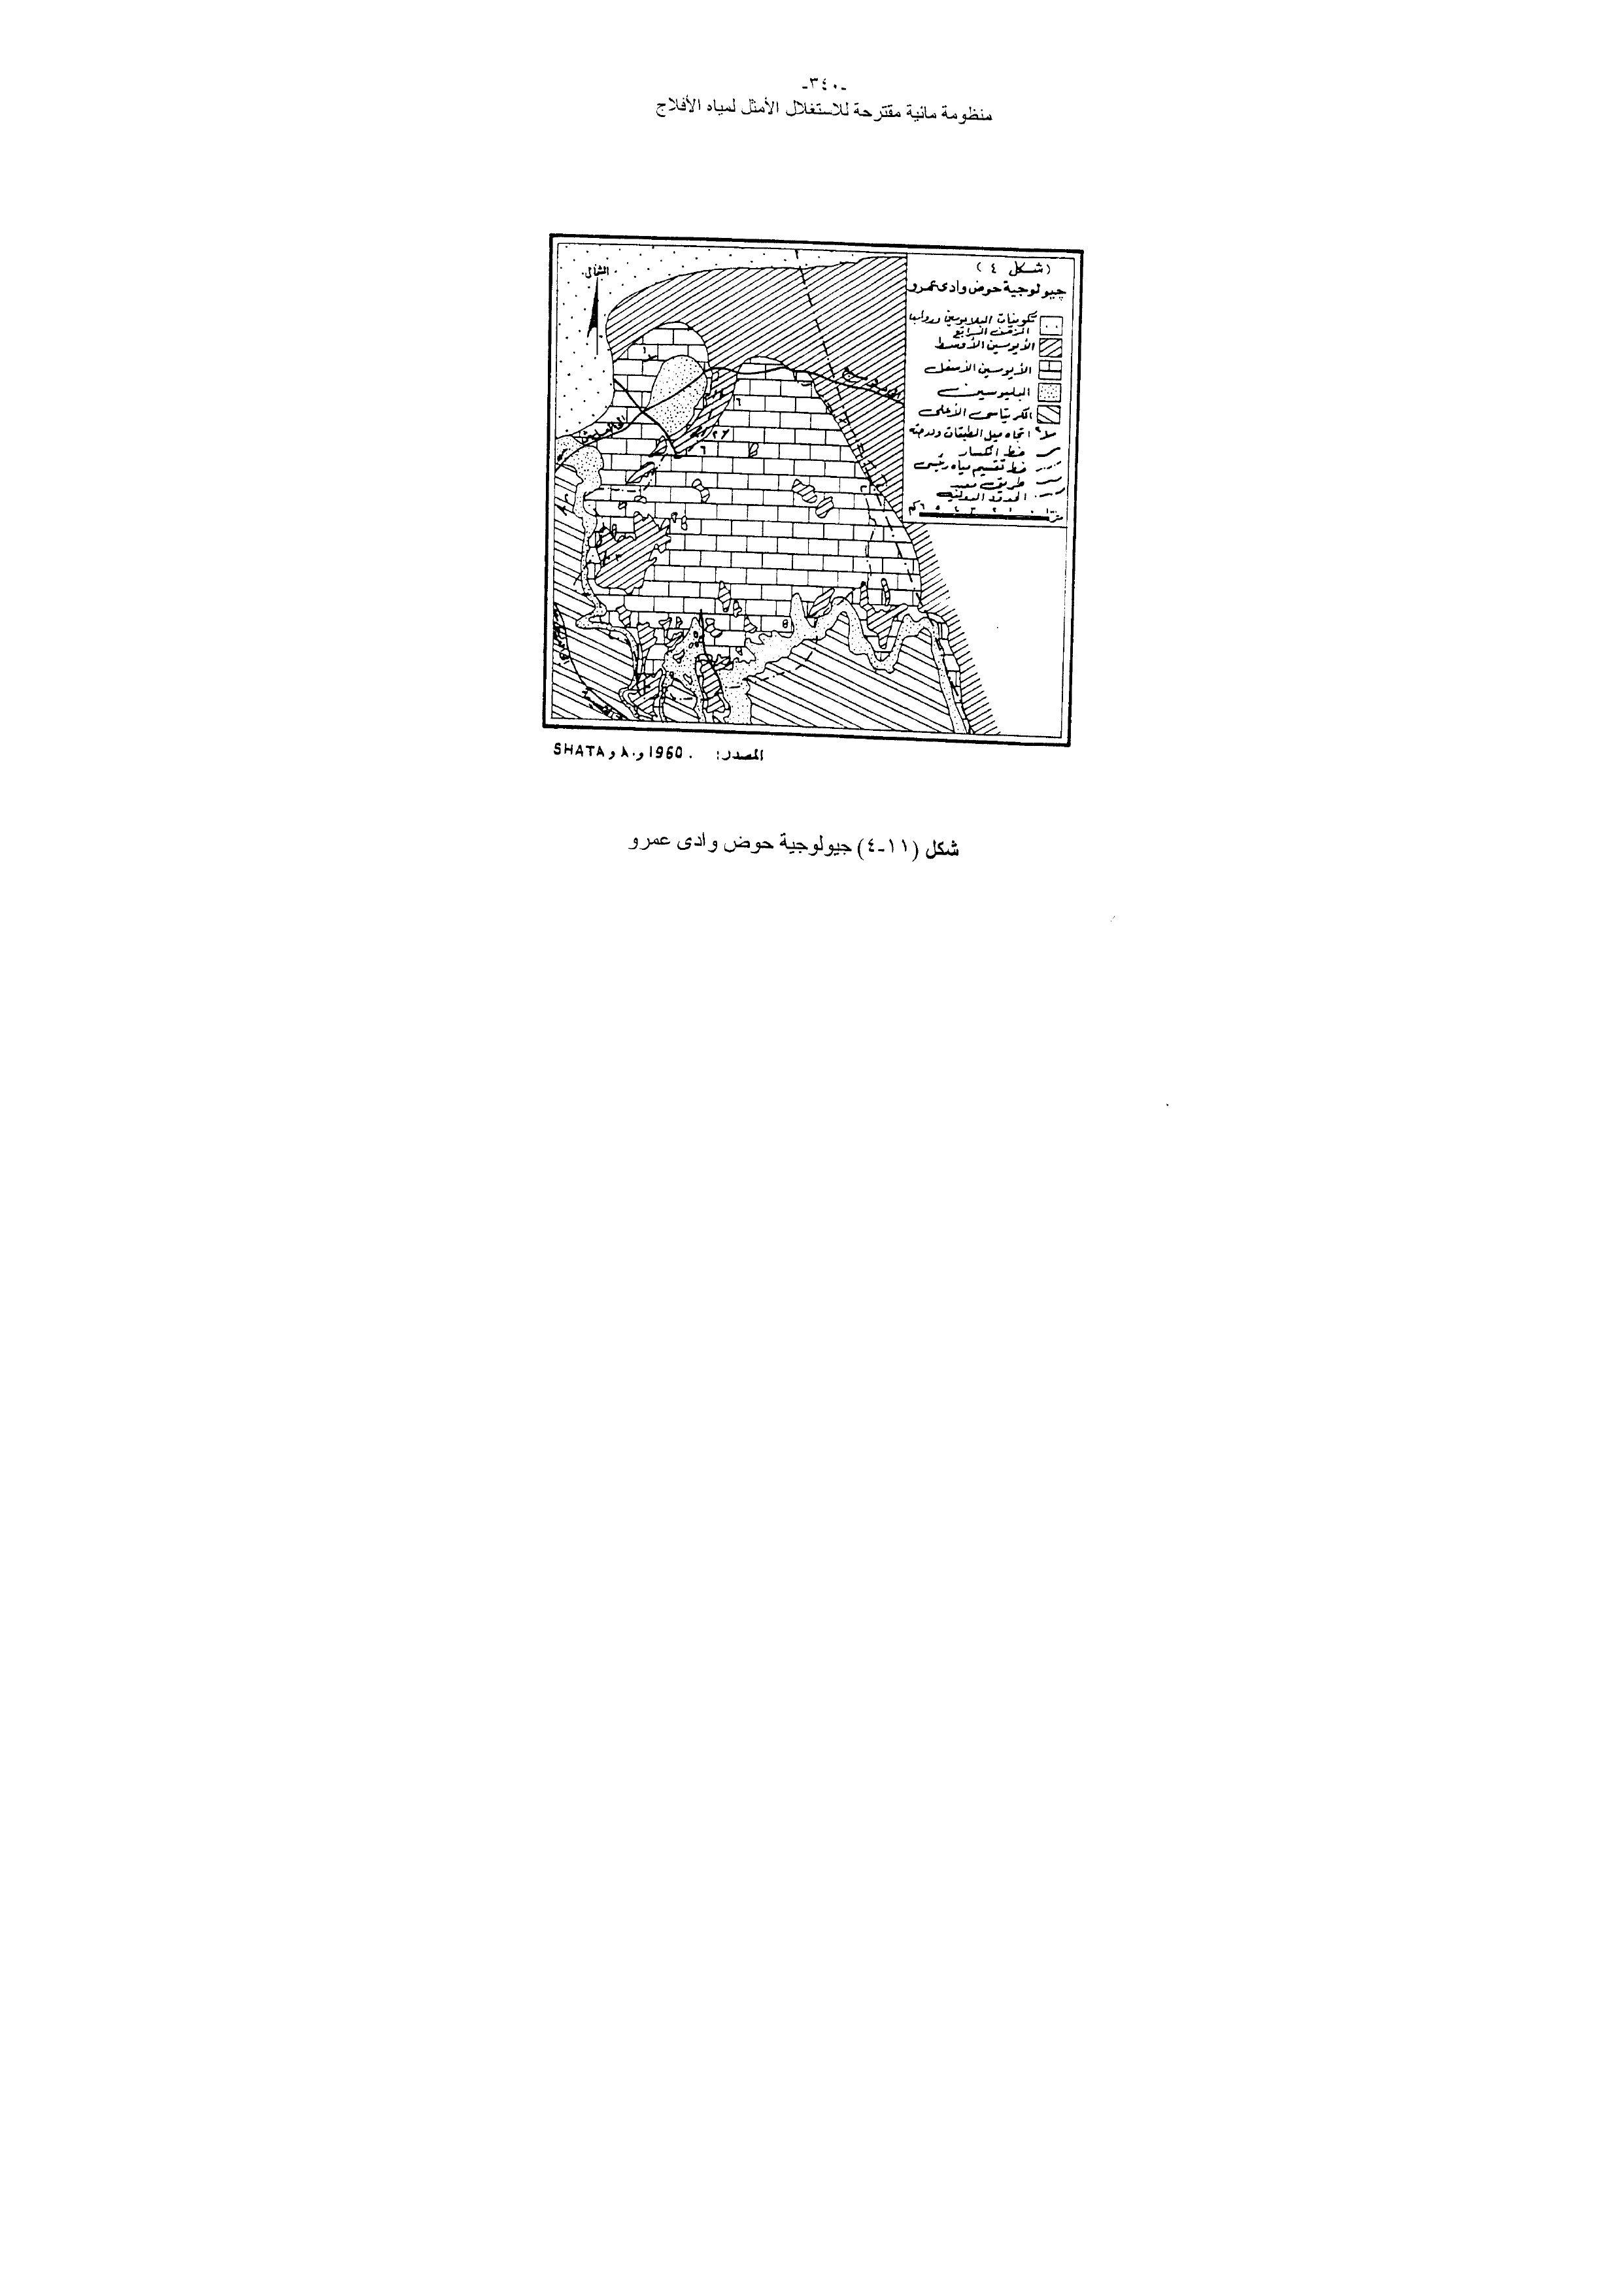 -٣٤٠-
منظومة مائية مقترحة للاستغلال الأمثل لمياه الأفلاج
(شكل ٤)
جيولوجية حوض وادى عمرو
الشمال
تكوينات البلايوسين ورواسب
الزمن الرابع
الأيوسين الأوسط
الأيوسين الأسفل
الباليوسين
الكريتاسى الأعلى
اتجاه ميل الطبقات ودرجته
خط انكسار
خط تقسيم مياه رئيسى
طريق معبد
الحدود الدولية
١ ٠ ١ ٢ ٣ ٤ ٥ ٦ كم
المصدر: SHATA و ٨٠ و 1960.
شكل (١١-٤) جيولوجية حوض وادى عمرو